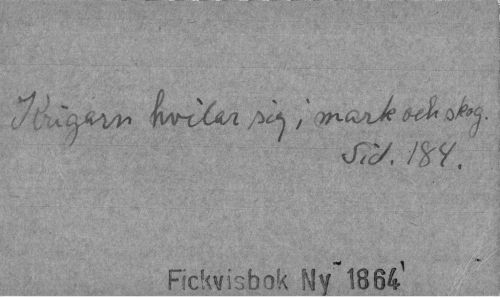 Krigarn hvilar sig i mark och skog.
Sid. 184.
Fickvisbok Ny 1864